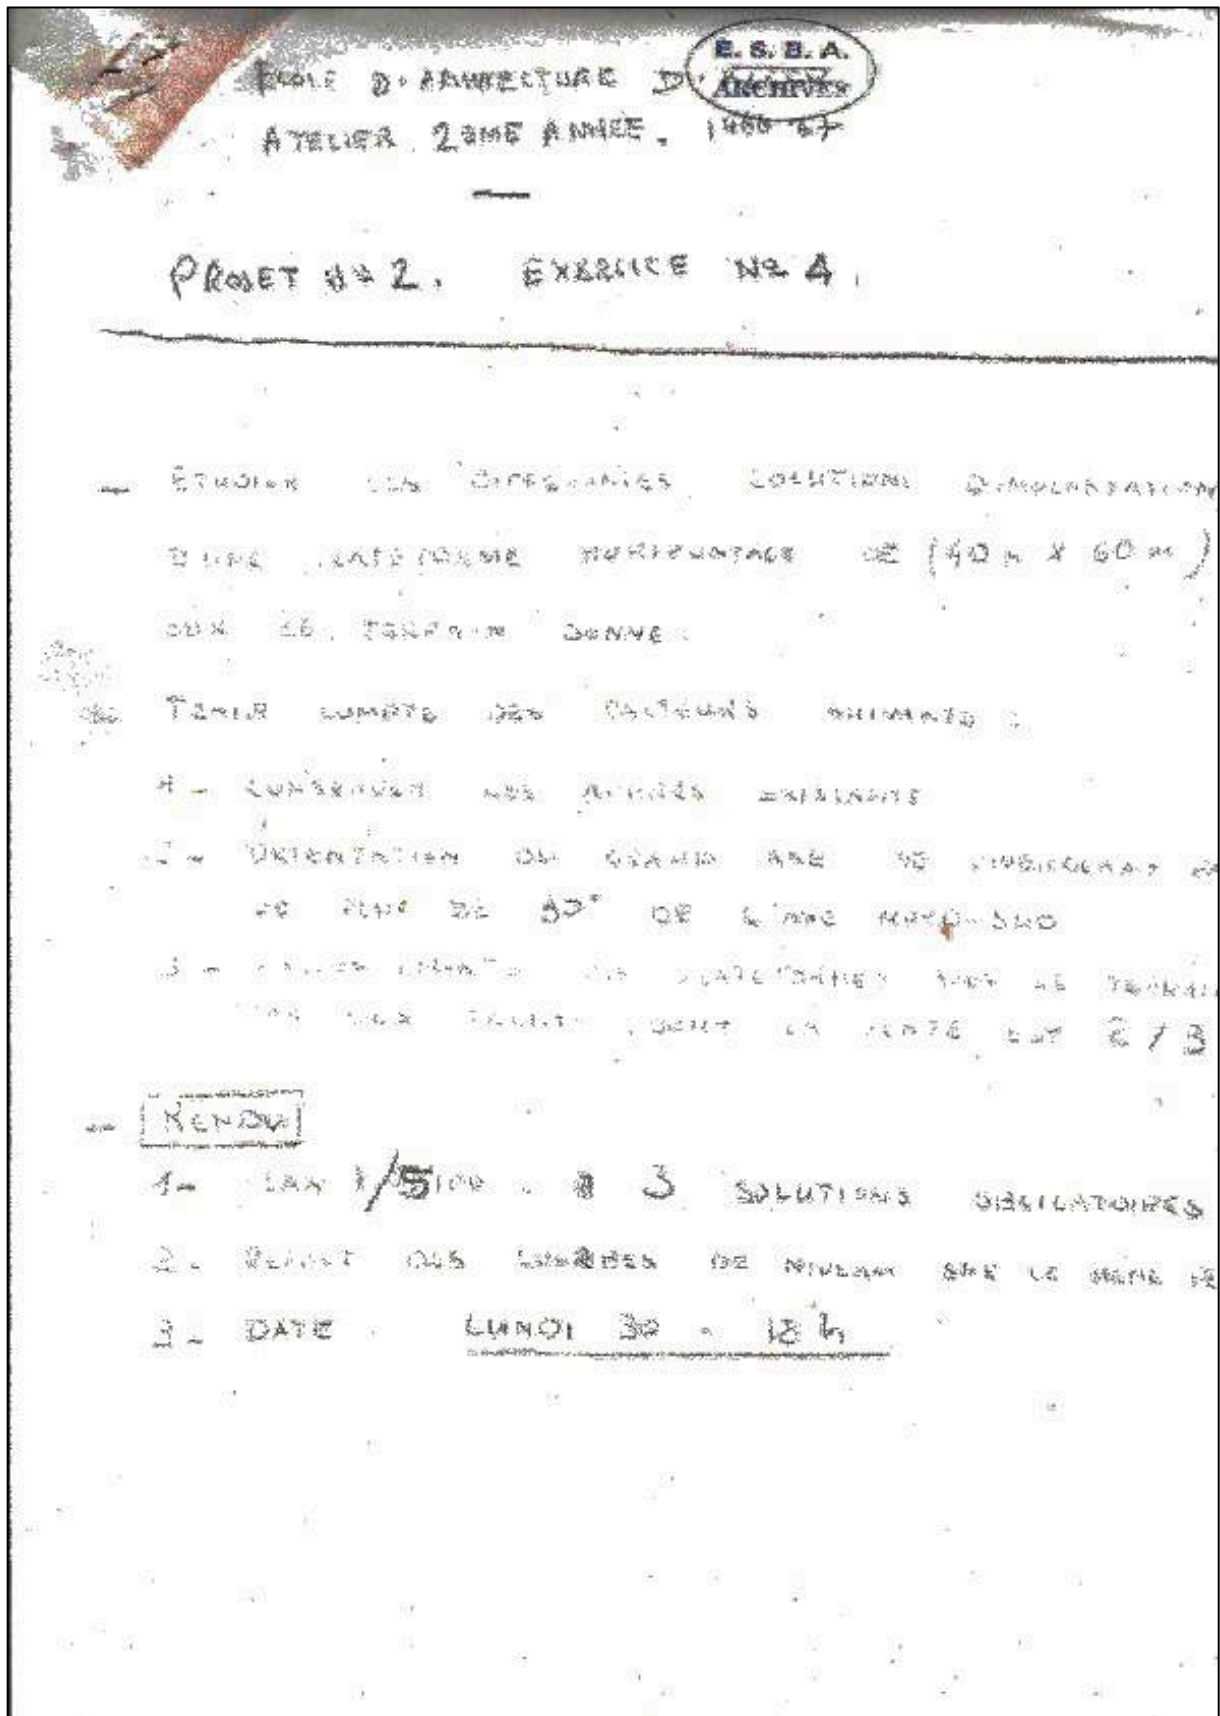 E. S. B. A.
ARCHIVES
ECOLE D'ARCHITECTURE D'
ATELIER 2EME ANNEE. 1966 67
PROJET No 2. EXERCICE No 4.
- ETUDIER LES DIFFERENTES SOLUTIONS D'IMPLANTATION
D'UNE PLATEFORME HORIZONTALE DE (40 m X 60 m)
SUR LE TERRAIN DONNE.
TENIR COMPTE DES FACTEURS SUIVANTS :
1 - CONSERVER LES ARBRES EXISTANTS
2 - ORIENTATION DU GRAND AXE NE
DE PLUS DE 30° DE L'AXE NORD-SUD
3 - PLATEFORMES AVEC LE TERRAIN
PAR DES TALUTS DONT LA PENTE EST 2/3
- RENDU
1- PLAN 1/500 . 3 SOLUTIONS OBLIGATOIRES
2- REPORT DES COURBES DE NIVEAU SUR LE MEME
3- DATE . LUNDI 30 . 18 h